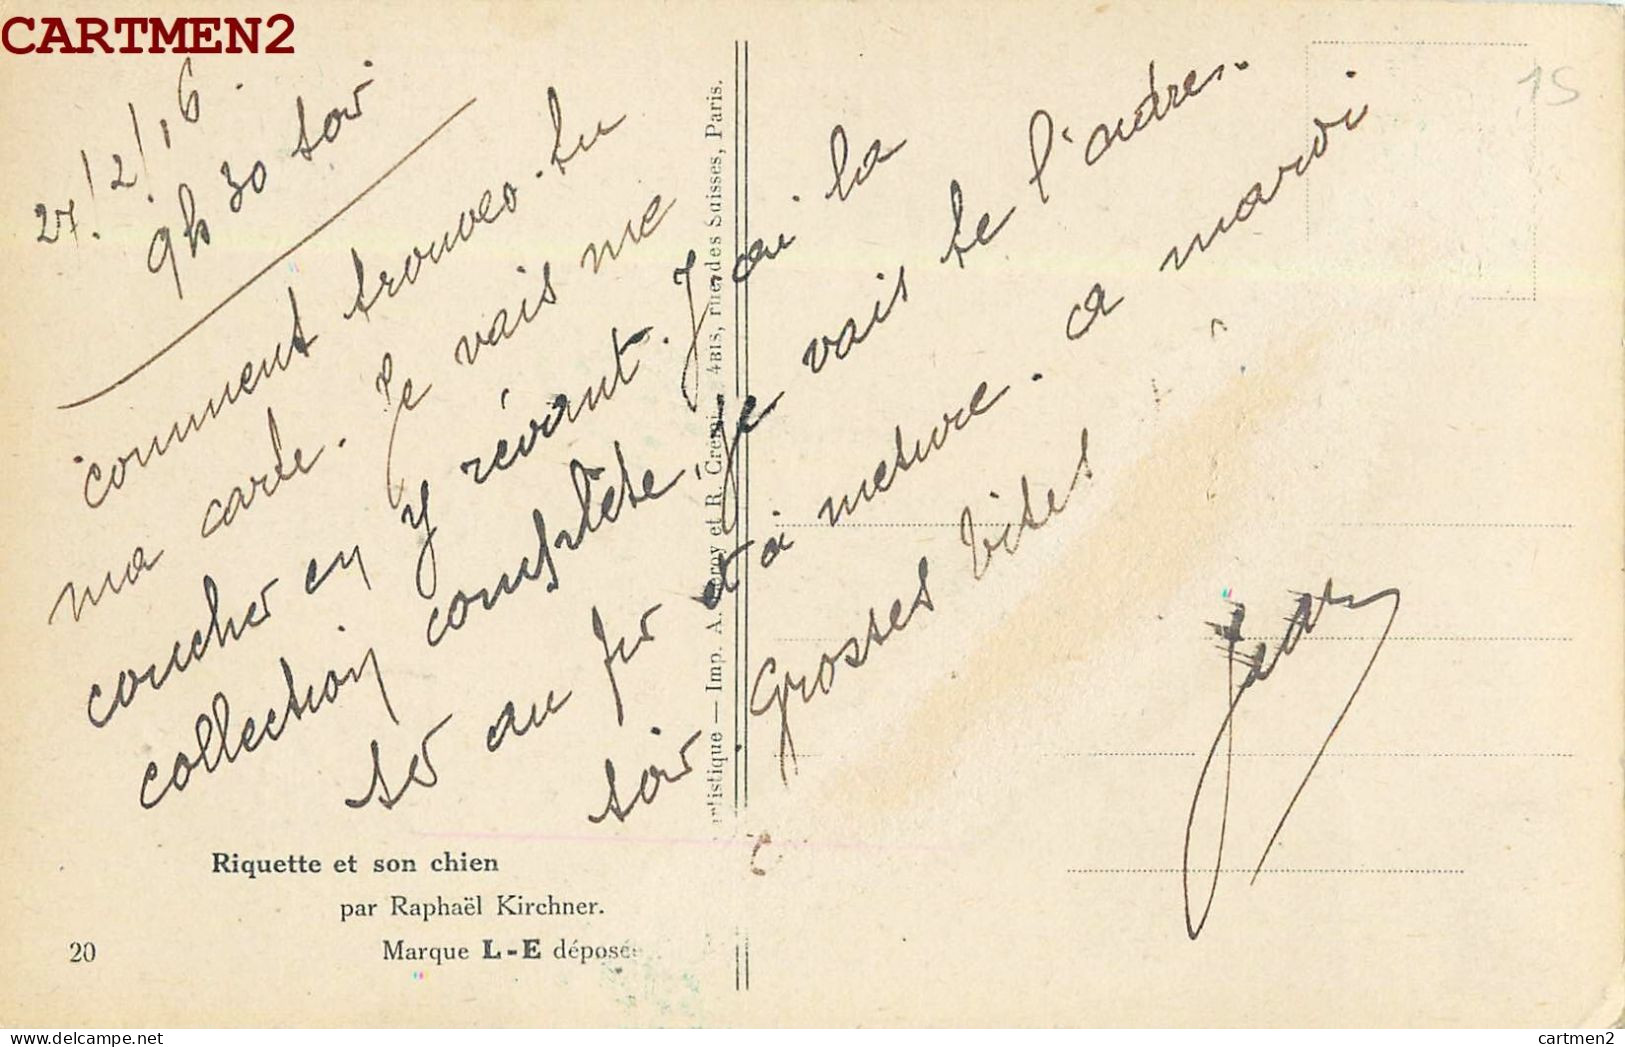 CARTMEN2
27/2/16.
9h 30 soir
comment trouves-tu
ma carte. Je vais me
coucher en y rêvant. J'ai la
collection complète, je vais te l'adres.
ser au fur et à mesure. a mardi
soir. Grosses bises
Jean
15
Riquette et son chien
par Raphaël Kirchner.
20
Marque L-E déposée
rtistique — Imp. A. et R. 4BIS, rue des Suisses, Paris.
cartmen2